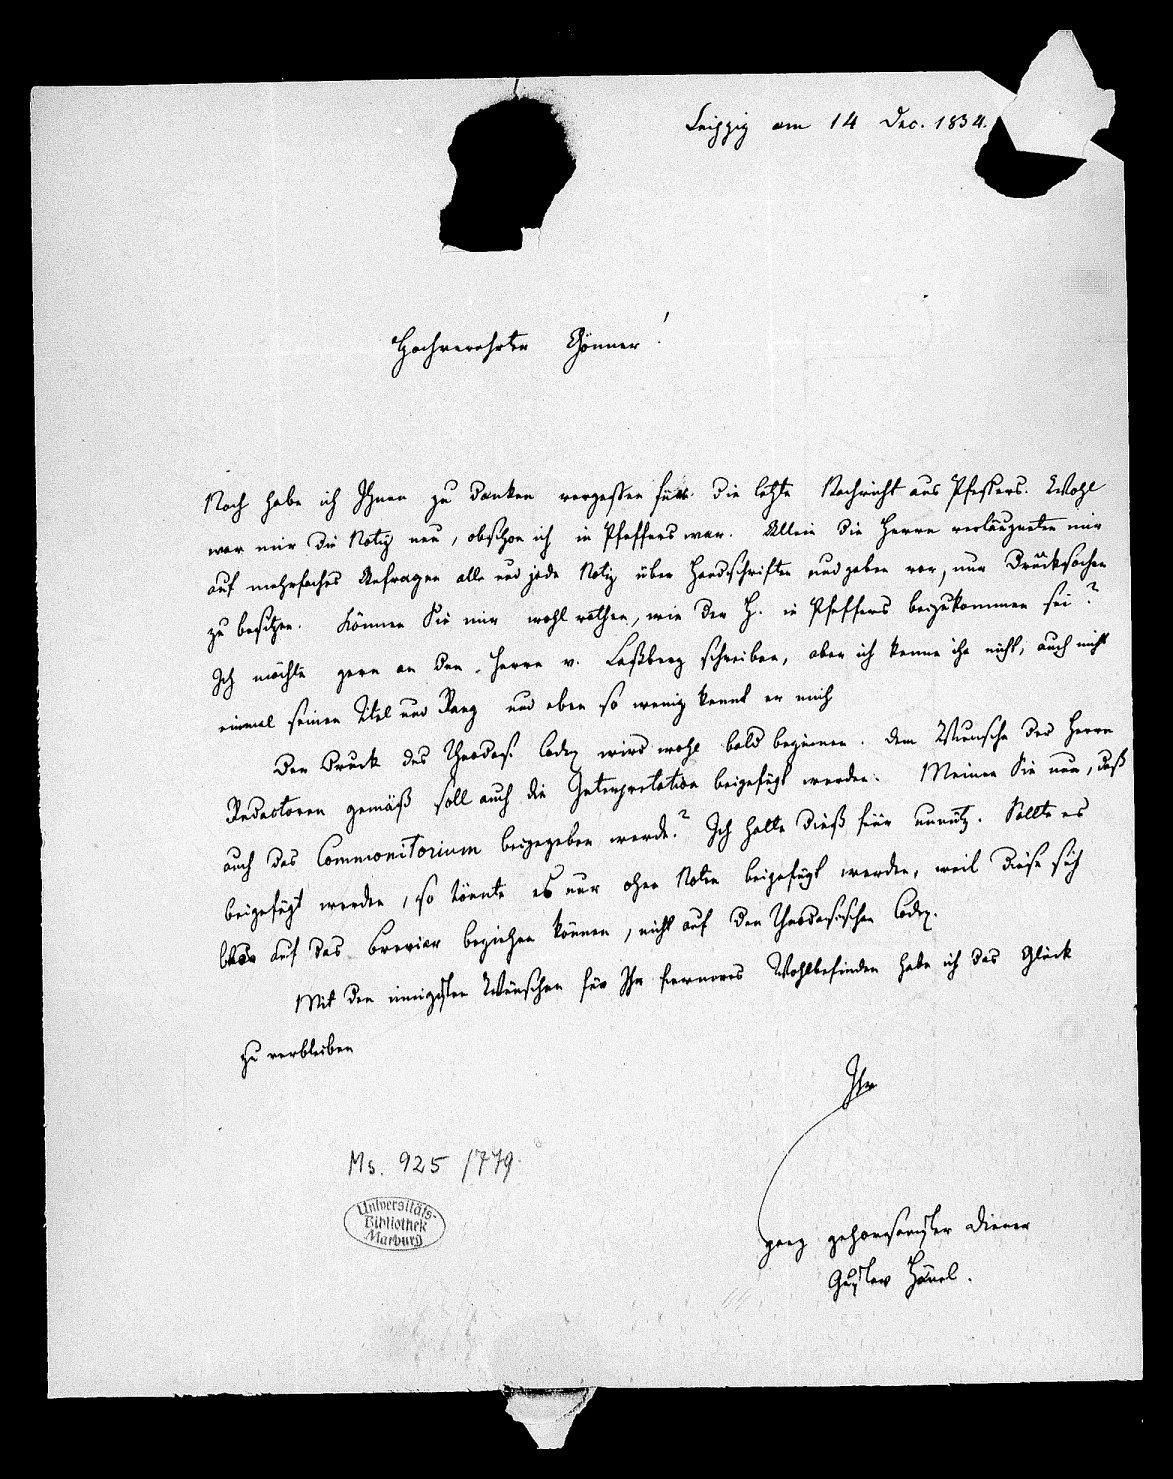 Leipzig am 14 Dec. 1834.
Hochverehrter Gönner!
Noch habe ich Ihnen zu danken vergessen für die letzte Nachricht aus Pfeffers. Wohl
war mir die Notiz neu, obschon ich in Pfeffers war. Allein die Herren verläugneten mir
auf mehrfaches Anfragen alle und jede Notiz über Handschriften und gaben vor, nur Drucksachen
zu besitzen. Können Sie mir wohl rathen, wie der H. in Pfeffers beizukommen sei?
Ich möchte gern an den Herrn v. Laßberg schreiben, aber ich kenne ihn nicht, auch nicht
einmal seinen Titel und Rang und eben so wenig kennt er mich
Der Druck des Theodos. Codex wird wohl bald beginnen. Dem Wunsche der Herren
Redactoren gemäß soll auch die Interpretation beigefügt werden. Meinen Sie nun, daß
auch das Commonitorium beigegeben werde? Ich halte dieß für unnütz. Sollte es
beigefügt werden, so könnte es nur ohne Noten beigefügt werden, weil diese sich
blos auf das Breviar beziehen können, nicht auf den Theodosischen Codex.
Mit den innigsten Wünschen für Ihr ferneres Wohlbefinden habe ich das Glück
zu verbleiben
Ihr
ganz gehorsamster Diener
Gustav Hänel.
Ms. 925/779
Universitäts-
Bibliothek
Marburg